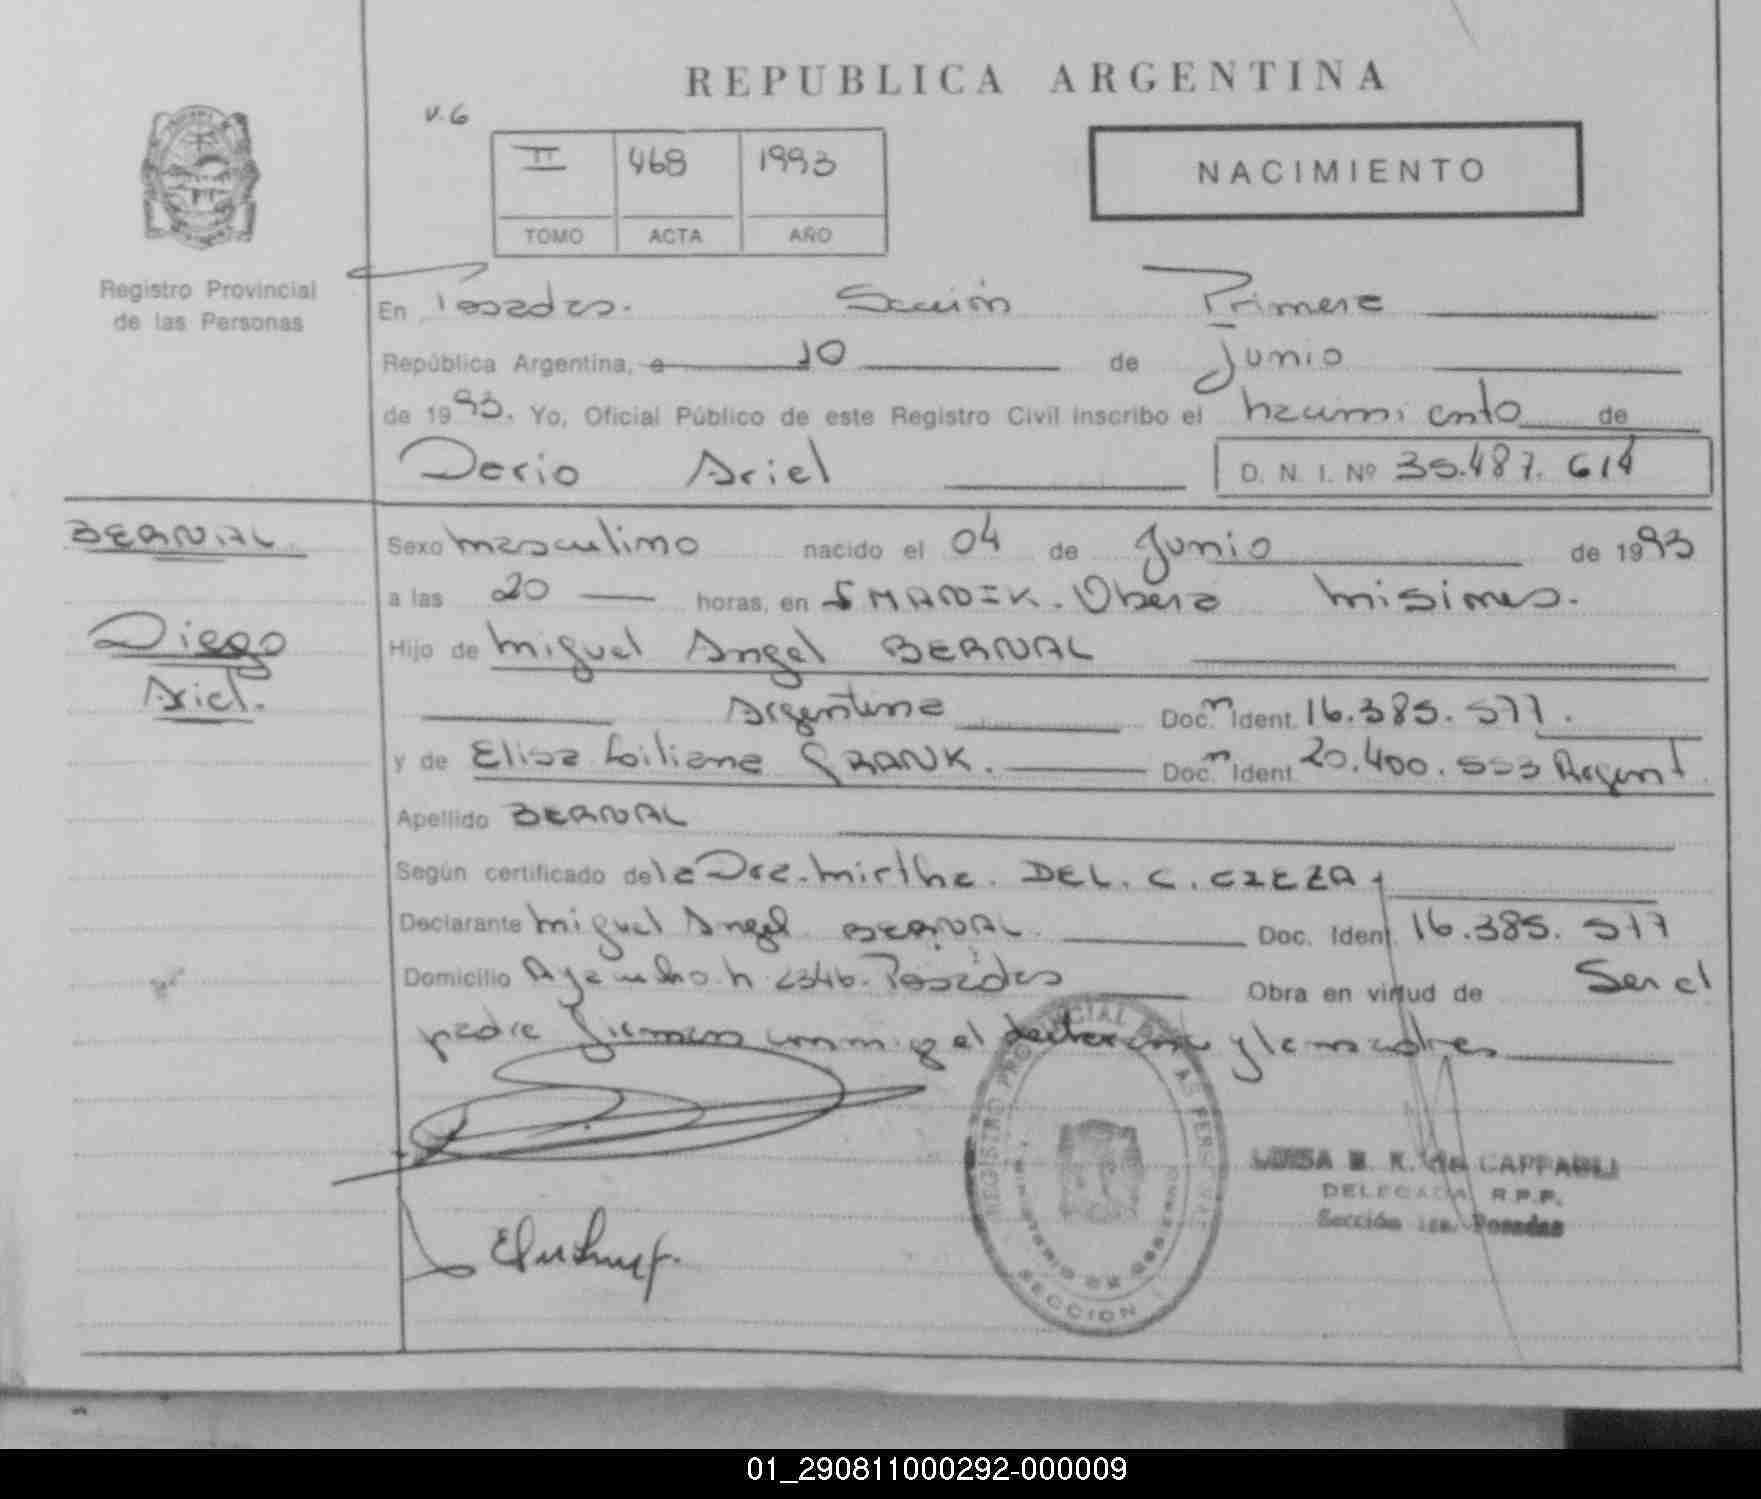 REPUBLICA ARGENTINA
v.6
II 468 1993
TOMO ACTA AÑO
NACIMIENTO
Registro Provincial
de las Personas
En Posadas. Sección Primera
República Argentina, a 10 de Junio
de 1993. Yo, Oficial Público de este Registro Civil inscribo el nacimiento de
Dario Ariel
D. N. I. Nº 35.487.614
BERNAL
Diego
Ariel.
Sexo masculino nacido el 04 de Junio de 1993
a las 20 horas, en Obera Misiones.
Hijo de Miguel Angel BERNAL
Argentina Doc. Ident. 16.385.577.
y de Elisa Liliana Doc. Ident. 20.400.553 Argent
Apellido BERNAL
Según certificado de la Dra. Mirtha. DEL. C.
Declarante Miguel Angel BERNAL Doc. Ident. 16.385.577
Domicilio Ayacucho n 2346. Posadas Obra en virtud de Ser el
padre Firman conmigo el declarante y la madre
REGISTRO PROVINCIAL DE LAS PERSONAS
MINISTERIO DE GOBIERNO
SECCION
LUISA E. K. de CAPPAELI
DELEGADA R.P.P.
Sección 1ra. Posadas
01_290811000292-000009